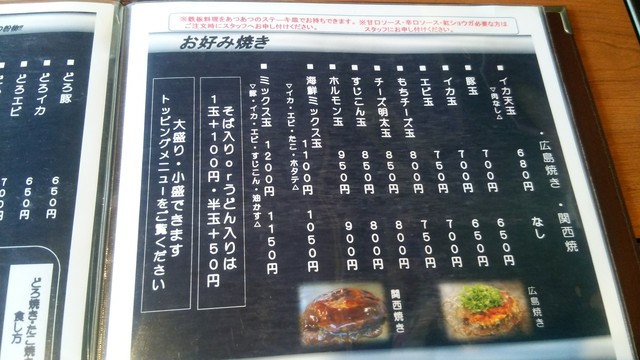 ※鉄板料理をあつあつのステーキ皿でお持ちできます。※甘口ソース・辛口ソース・紅ショウガ必要な方は
ご注文時にスタッフへお申し付けください。 スタッフにお申し付けください。
お好み焼き
・広島焼き ・関西焼
なし
イカ天玉 680円 650円
▽肉なし△
豚玉 700円 650円
イカ玉 750円 700円
エビ玉 700円 750円
もちチーズ玉 850円 800円
チーズ明太玉 850円 800円
すじこん玉 850円 800円
ホルモン玉 950円 900円
海鮮ミックス玉 1100円 1050円
▽イカ・エビ・たこ・ホタテ△
ミックス玉 1200円 1150円
▽豚・イカ・エビ・すじこん・油かす△
そば入りorうどん入りは
1玉+100円・半玉+50円
大盛り・小盛できます
トッピングメニューをご覧ください
広島焼き
関西焼き
どろ豚 650円
どろイカ 650円
どろエビ 700円
どろ焼き・たこ焼
食し方